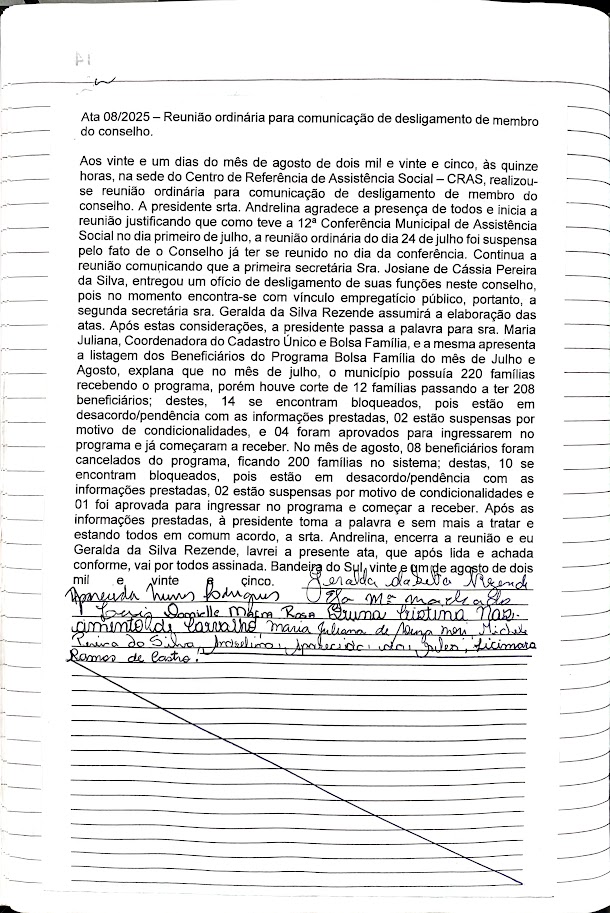 Ata 08/2025 – Reunião ordinária para comunicação de desligamento de membro
do conselho.
Aos vinte e um dias do mês de agosto de dois mil e vinte e cinco, às quinze
horas, na sede do Centro de Referência de Assistência Social – CRAS, realizou-
se reunião ordinária para comunicação de desligamento de membro do
conselho. A presidente srta. Andrelina agradece a presença de todos e inicia a
reunião justificando que como teve a 12ª Conferência Municipal de Assistência
Social no dia primeiro de julho, a reunião ordinária do dia 24 de julho foi suspensa
pelo fato de o Conselho já ter se reunido no dia da conferência. Continua a
reunião comunicando que a primeira secretária Sra. Josiane de Cássia Pereira
da Silva, entregou um ofício de desligamento de suas funções neste conselho,
pois no momento encontra-se com vínculo empregatício público, portanto, a
segunda secretária sra. Geralda da Silva Rezende assumirá a elaboração das
atas. Após estas considerações, a presidente passa a palavra para sra. Maria
Juliana, Coordenadora do Cadastro Único e Bolsa Família, e a mesma apresenta
a listagem dos Beneficiários do Programa Bolsa Família do mês de Julho e
Agosto, explana que no mês de julho, o município possuía 220 famílias
recebendo o programa, porém houve corte de 12 famílias passando a ter 208
beneficiários; destes, 14 se encontram bloqueados, pois estão em
desacordo/pendência com as informações prestadas, 02 estão suspensas por
motivo de condicionalidades, e 04 foram aprovados para ingressarem no
programa e já começaram a receber. No mês de agosto, 08 beneficiários foram
cancelados do programa, ficando 200 famílias no sistema; destas, 10 se
encontram bloqueados, pois estão em desacordo/pendência com as
informações prestadas, 02 estão suspensas por motivo de condicionalidades e
01 foi aprovada para ingressar no programa e começar a receber. Após as
informações prestadas, à presidente toma a palavra e sem mais a tratar e
estando todos em comum acordo, a srta. Andrelina, encerra a reunião e eu
Geralda da Silva Rezende, lavrei a presente ata, que após lida e achada
conforme, vai por todos assinada. Bandeira do Sul, vinte e um de agosto de dois
mil e vinte e cinco. Geralda da Silva Rezende
Aparecida Nunes Rodrigues Mª Machado
Danielle Rosa Bruna Cristina Nas-
cimento de Carvalho Maria Juliana de Michele
Silva, Andrelina Aparecida Sicimara
Ramos de Castro.